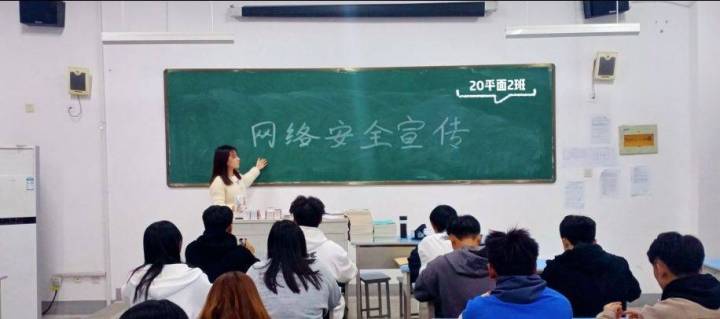 20平面2班
网络安全宣传